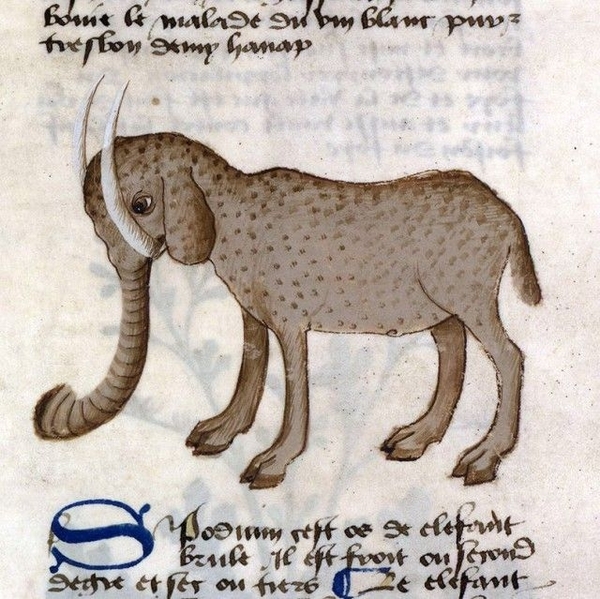 boive le malade du vin blanc puy
tresbon demy hanap
Spodium cest os de elefant
brule Il est froit ou second
degre et sec ou tiers Le elefant